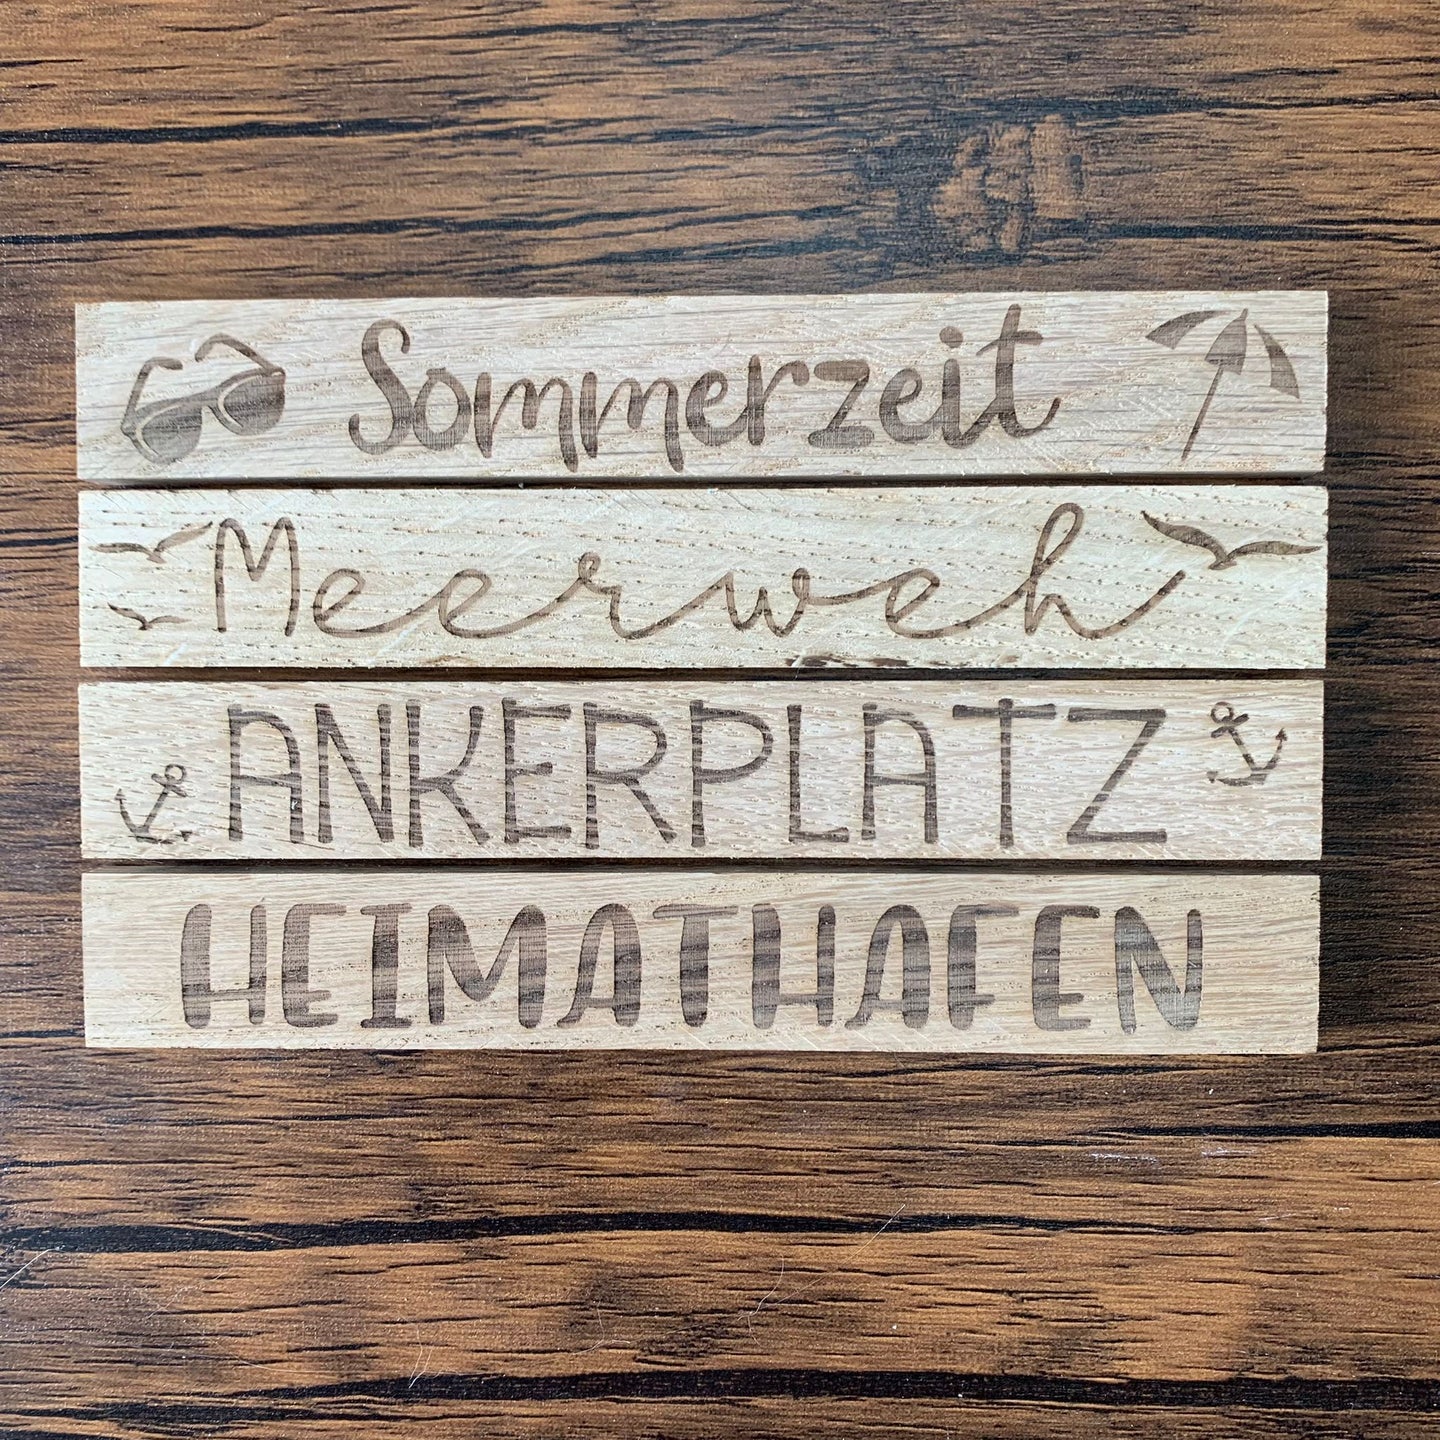 Sommerzeit
Meerweh
ANKERPLATZ
HEIMATHAFEN